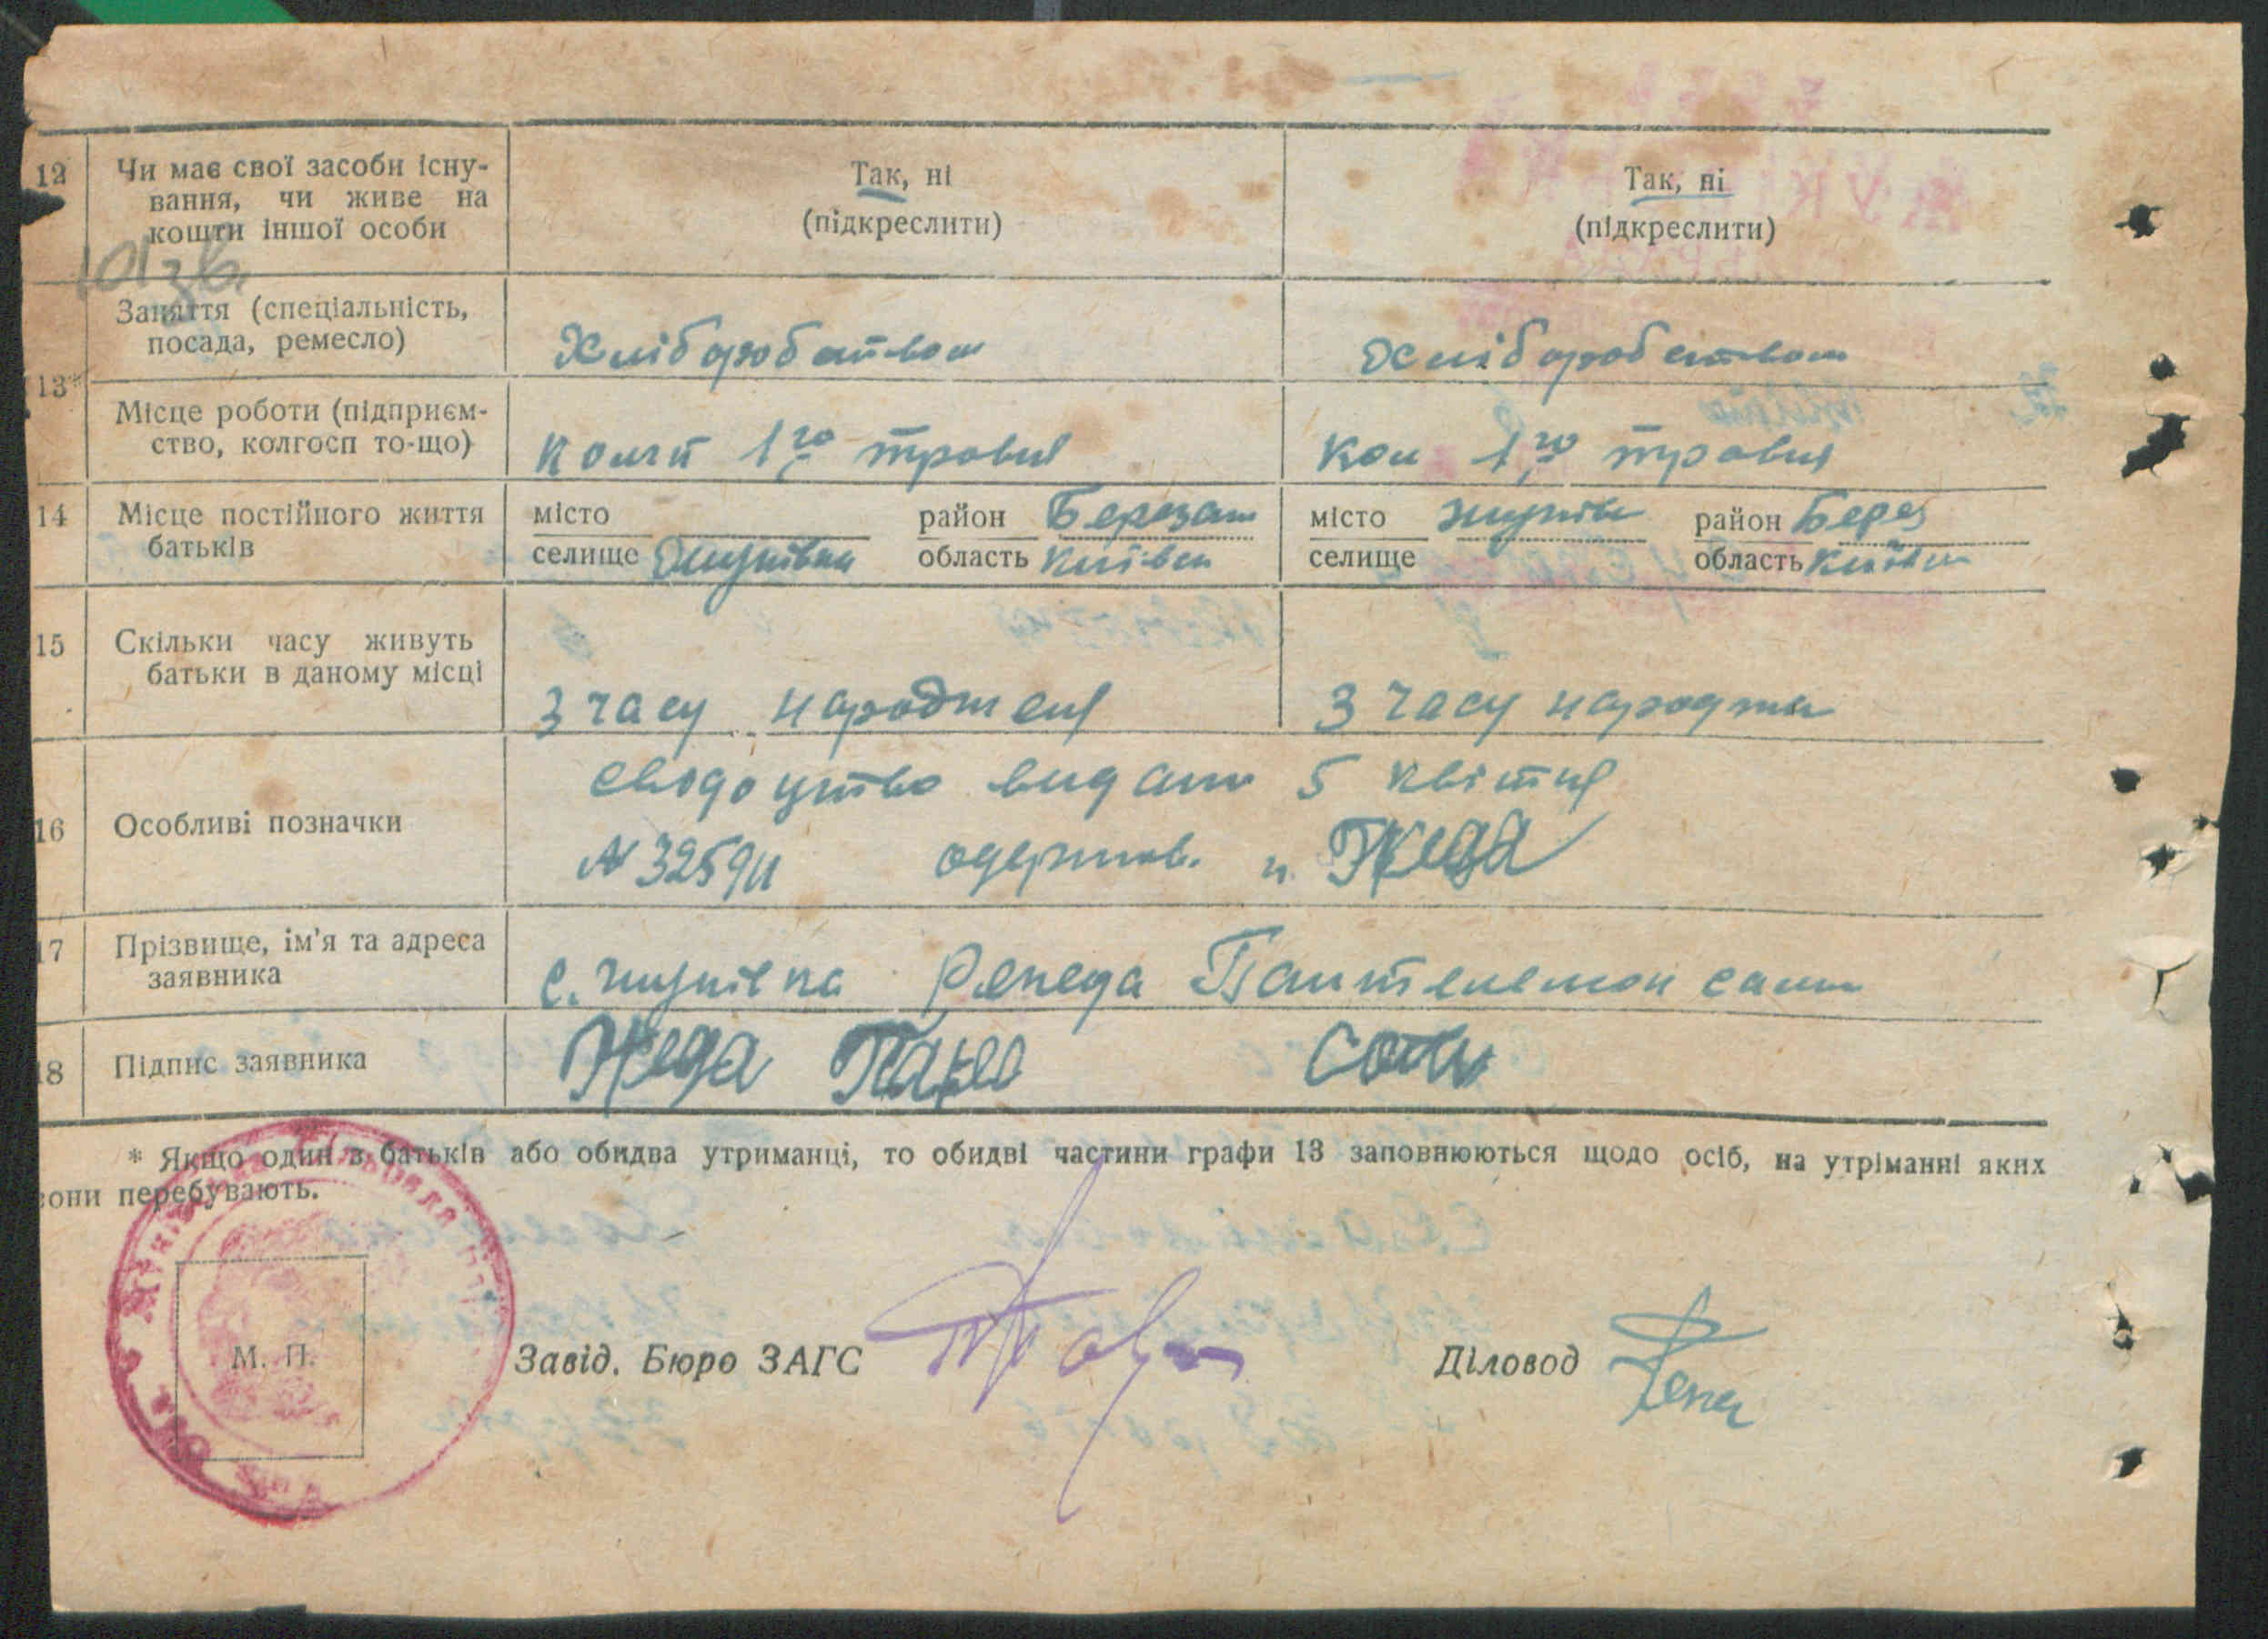 12 Чи має свої засоби існу-
вання, чи живе на
кошти іншої особи
Так, ні
(підкреслити)
Так, ні
(підкреслити)
Заняття (спеціальність,
посада, ремесло)
Хліборобством
Хліборобством
13*
Місце роботи (підприєм-
ство, колгосп то-що)
1го травня
Кол 1го травня
14 Місце постійного життя
батьків
місто район Березан
селище область Київськ
місто район Берез
селище область Київськ
15 Скільки часу живуть
батьки в даному місці
З часу народження
З часу народжен
16 Особливі позначки
свідоцтво видано 5 квітня
№ одержав.
17 Прізвище, ім'я та адреса
заявника
с. Пантелемон
18 Підпис заявника
* Якщо один з батьків або обидва утриманці, то обидві частини графи 13 заповнюються щодо осіб, на утріманні яких
вони перебувають.
М. П.
Завід. Бюро ЗАГС
Діловод